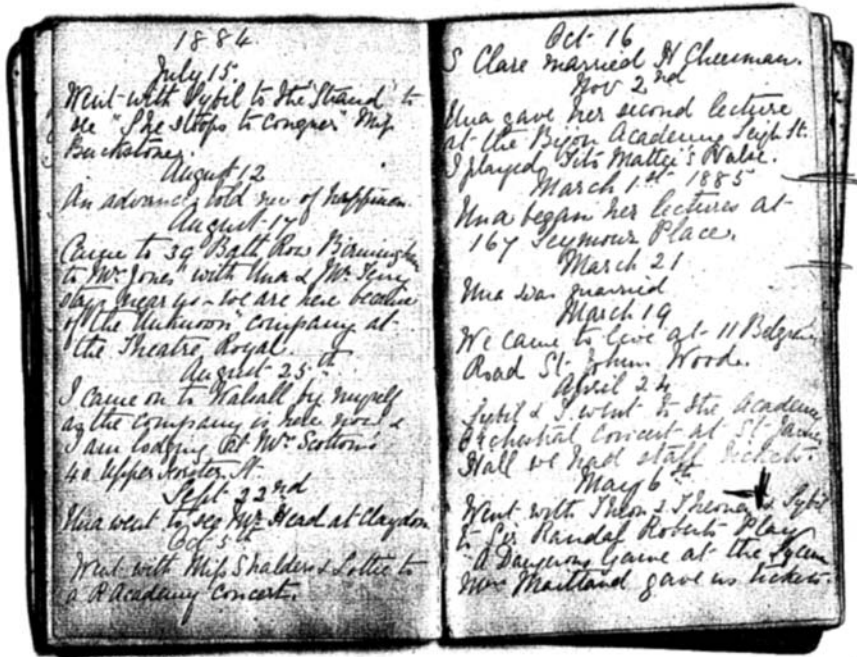 1884.
July 15.
Went with Sybil to the 'Strand' to
see "She stoops to conquer" Miss
Buckstone.
August 12
An advance, told me of happiness.
August 17
Came to 39 Bath Row Birmingham
to Mrs Jones' with Una & Mr
stays near us - we are here because
of the "Unknown" company at
the Theatre Royal.
August 25th
I came on to Walsall by myself
as the company is here now &
I am lodging at Mrs Scotton's
40 Upper Forster St.
Sept 22nd
Una went to see Mr Head at Claydon
Oct 5th
Went with Miss Shalders & Lottie to
a R Academy Concert.
Oct 16
S Clare married H Cheesman.
Nov 2nd
Una gave her second lecture
at the Bijou Academy Leigh St.
I played Tito Mattei's Valse.
March 1st 1885
Una began her lectures at
167 Seymour Place.
March 21
Una was married
March 19
We came to live at 11
Road St. Johns Wood.
April 24
Sybil & I went to the Academy
Orchestral Concert at St James
Hall we had staff tickets.
May 6th
Went with Theon & & Sybil
to Sir Randal Roberts Play
"A Dangerous Game at the
Maitland gave us tickets.